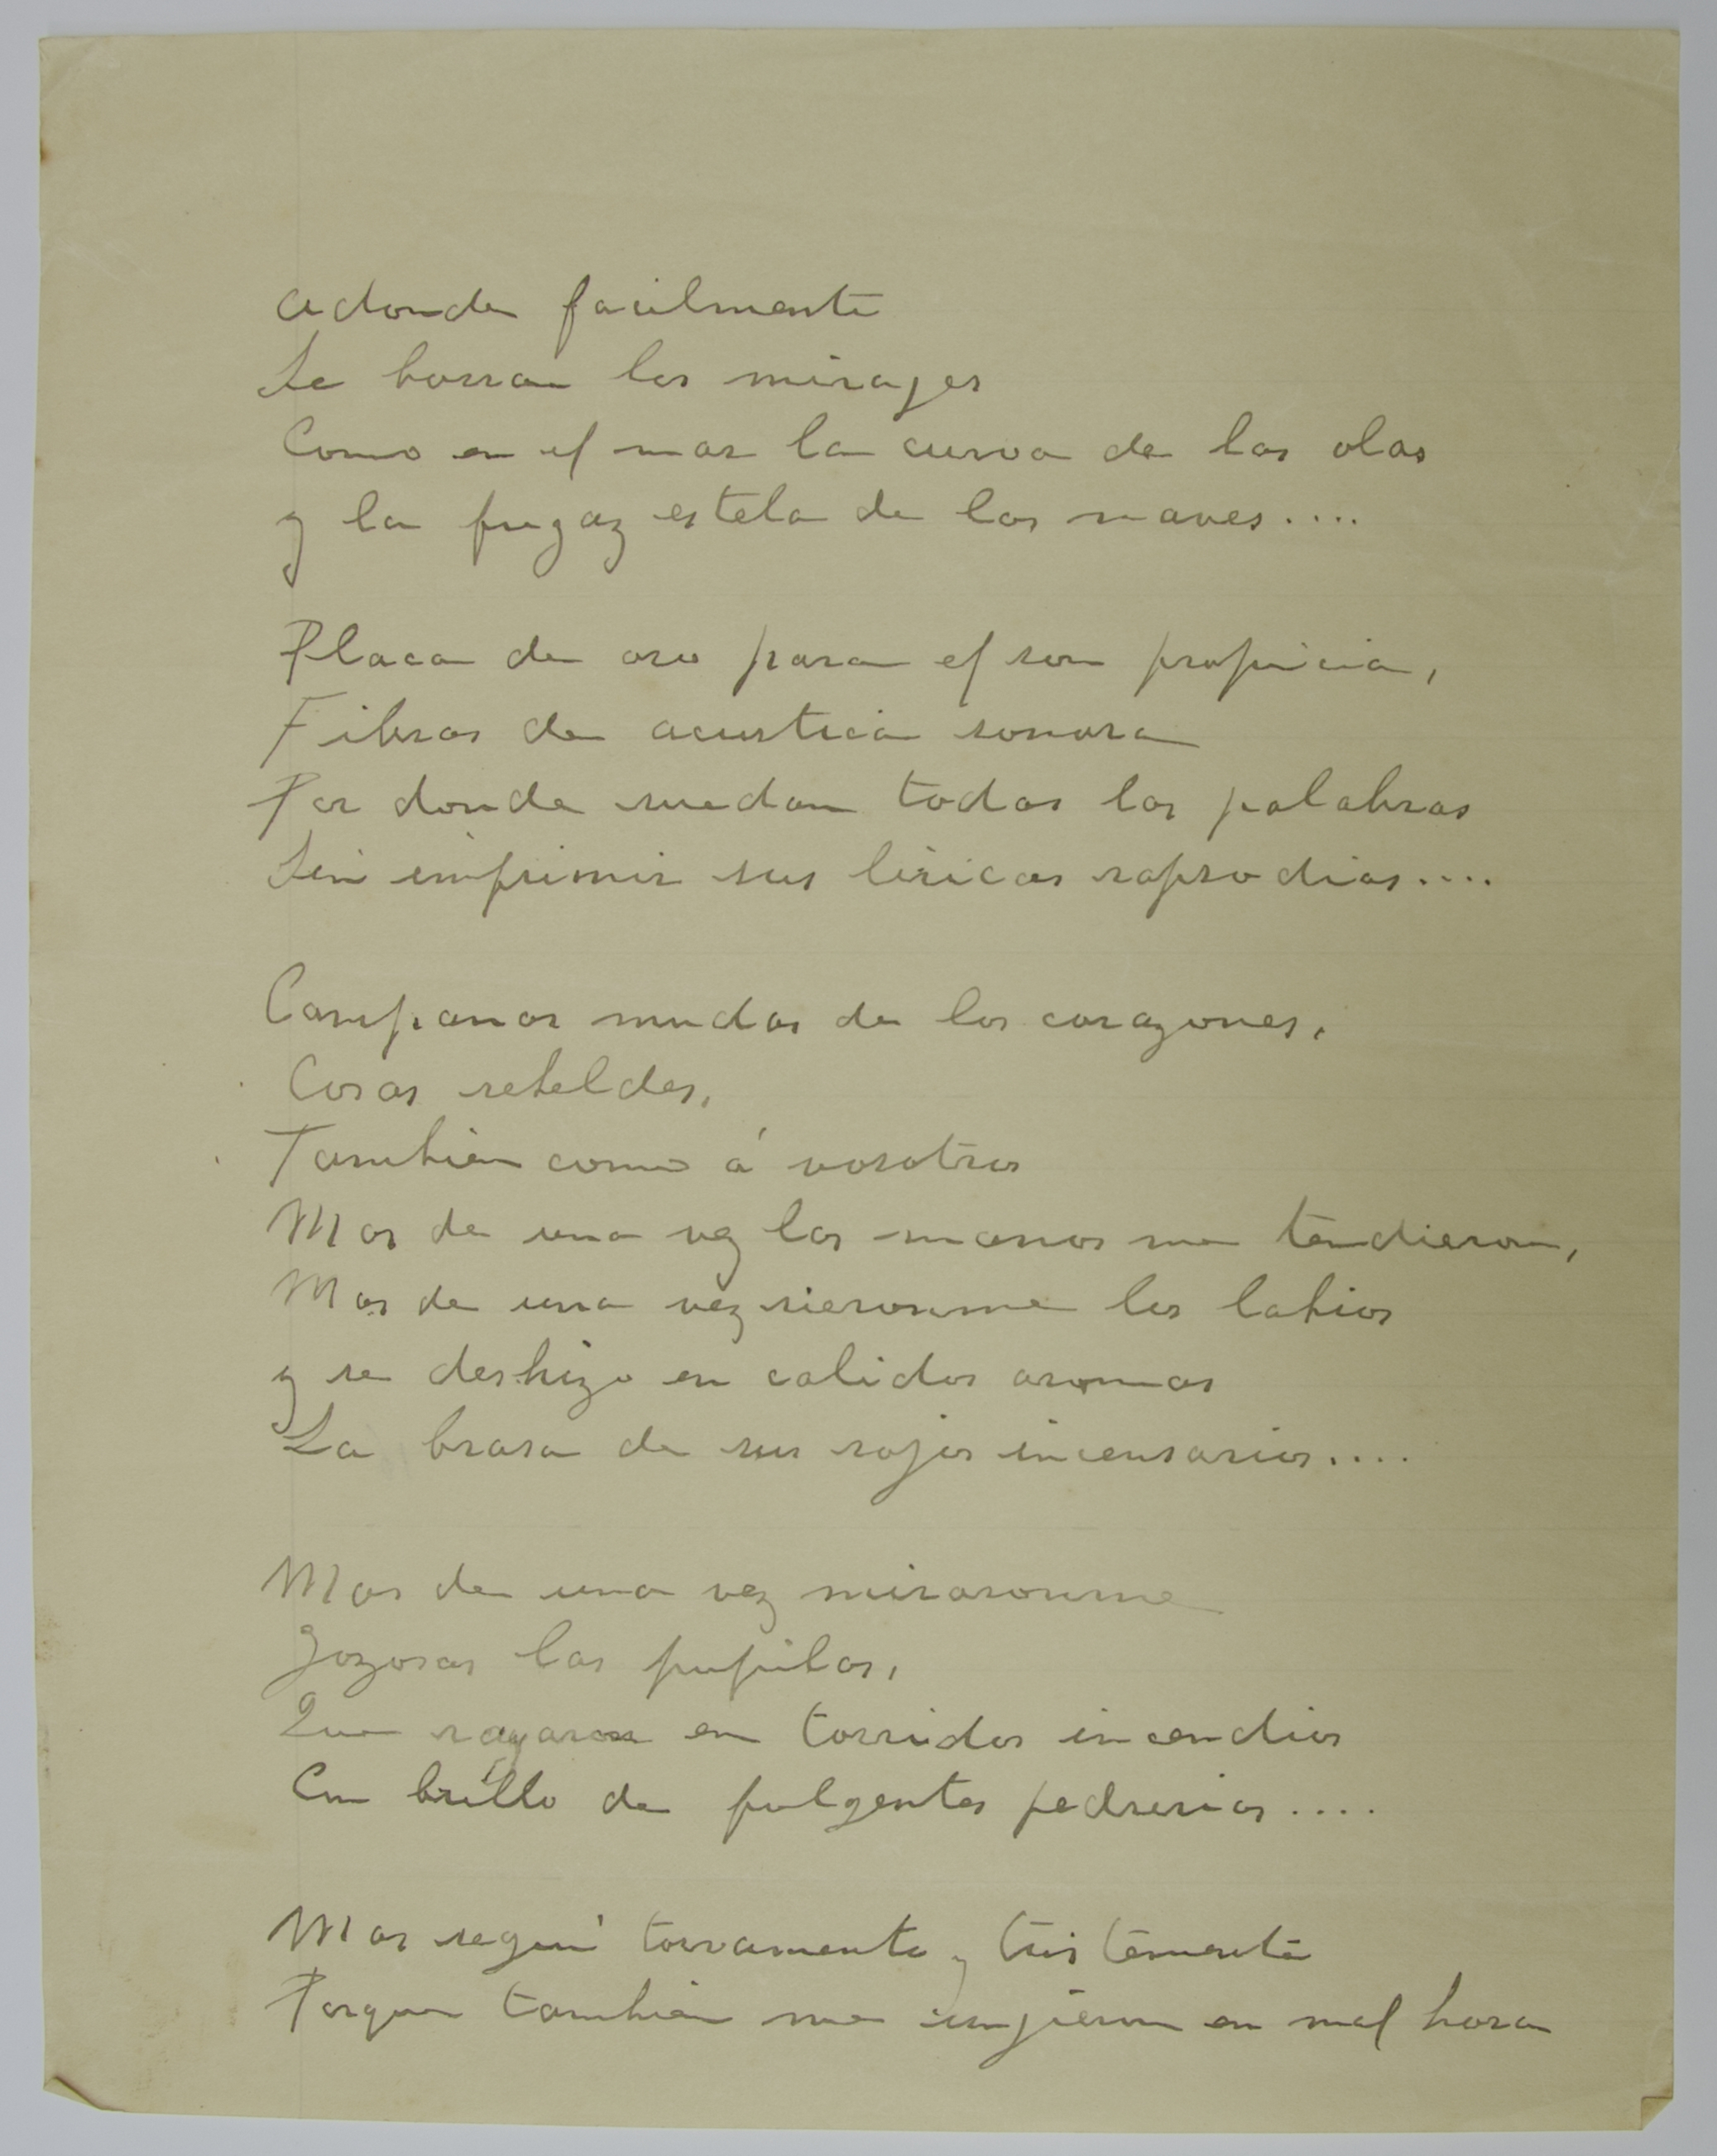 adonde facilmente
Se borran los mirages
Como en el mar la curva de las olas
y la fugaz estela de las naves....
Placa de oro para el son propicia,
Fibras de acustica sonora
Por donde ruedan todas las palabras
Sin imprimir sus liricas rapsodias....
Campanas mudas de los corazones,
Cosas rebeldes,
Tambien como á vosotros
Mas de una vez las manos me tendieron,
Mas de una vez rieronme los labios
y se deshizo en calidos aromas
La brasa de sus rojos incensarios....
Mas de una vez miraronme
Gozosas las pupilas,
Que rayaron en torridos incendios
Con brillo de fulgentes pedrerias....
Mas seguí torvamente y tristemente
Porque tambien me ungieron en mal hora